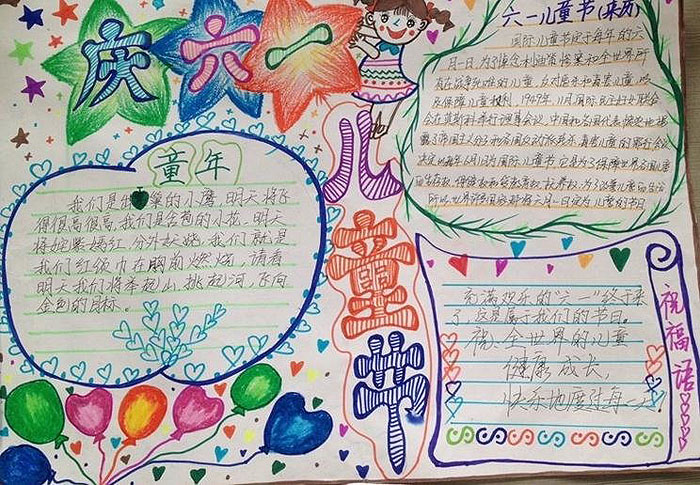 庆六一
儿童节
六一儿童节(来历)
国际儿童节定于每年的六
月一日。为了悼念利迪策惨案和全世界所
有在战争中死难的儿童,反对虐杀和毒害儿童,以
及保障儿童权利,1949年11月国际民主妇女联合
会在莫斯科举行理事会议,中国和各国代表愤怒地揭
露了帝国主义分子和各国反动派残杀、毒害儿童的罪行。会议
决定以每年6月1日为国际儿童节。它是为了保障世界各国儿童
的生存权、保健权和受教育权、抚养权,为了改善儿童的生活
所以世界许多国家都将六月一日定为儿童的节日
童年
我们是 巢的小鹰,明天将飞
得很高很高。我们是含苞的小花,明天
将姹紫嫣红,分外妖娆。我们就是
我们红领巾在胸前燃烧,请看
明天我们将奉起山,挑起河,飞向
金色的目标。
充满欢乐的“六一”终于来
了,这是属于我们的节日。
祝:全世界的儿童
健康成长,
快乐地度过每一天
祝福语